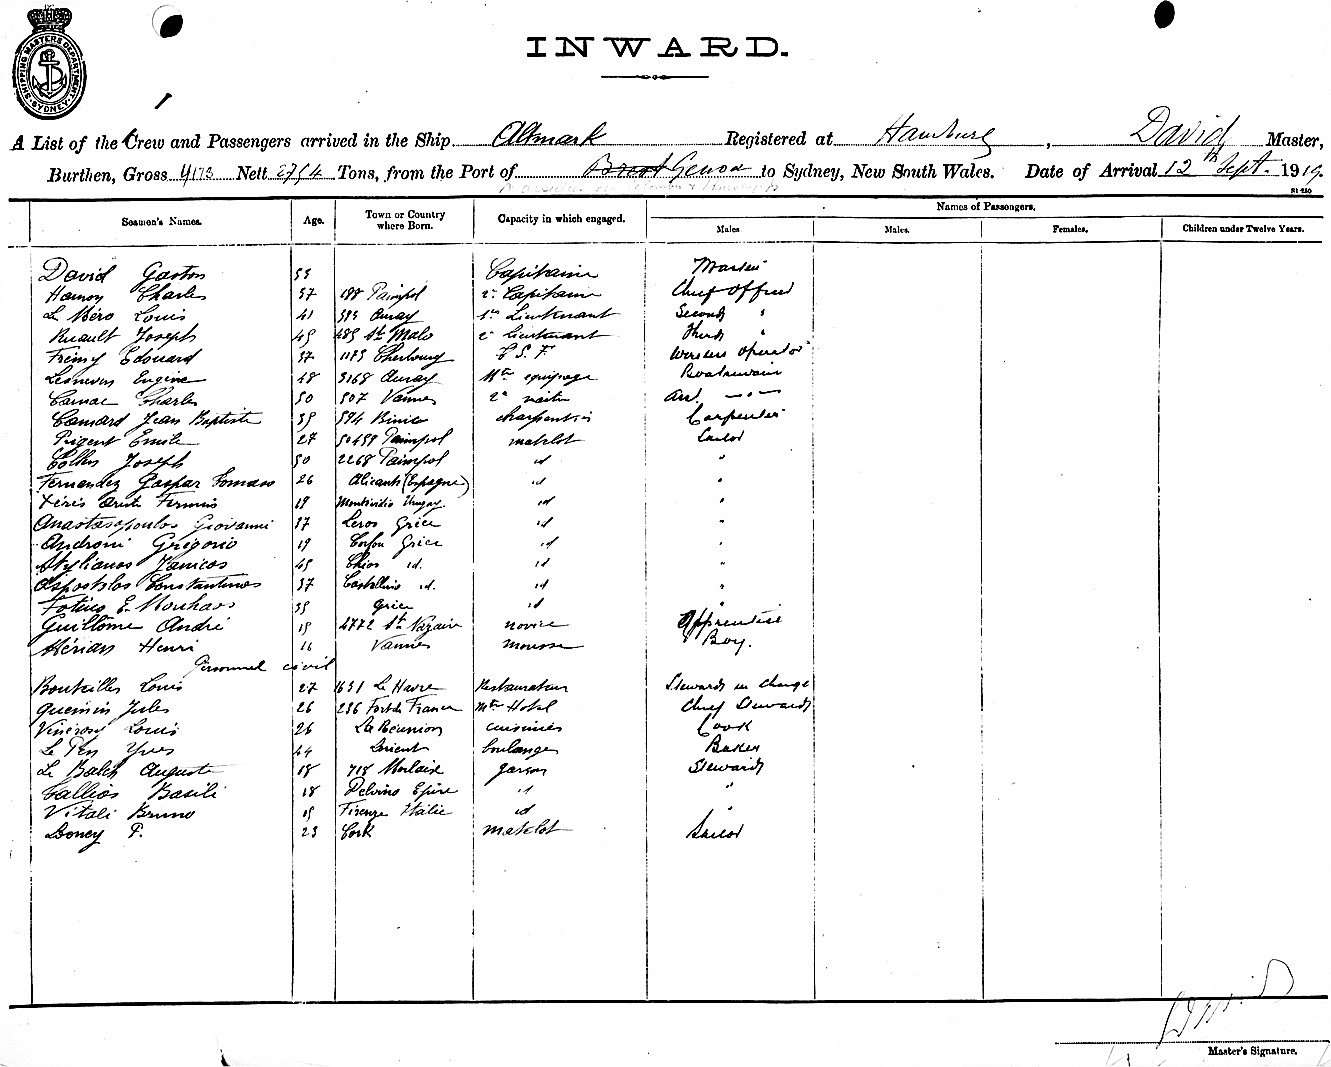 SHIPPING MASTERS DEPARTMENT SYDNEY
INWARD.
A List of the Crew and Passengers arrived in the Ship Altmark Registered at Hamburg, David Master,
Burthen, Gross 4173 Nett 2754 Tons, from the Port of Brest Genoa to Sydney, New South Wales. Date of Arrival 12th Sept. 1919.
Seamen's Names. Age. Town or Country where Born. Capacity in which engaged. Names of Passengers.
Males Males. Females. Children under Twelve Years.
David Gaston 53 Capitaine Master
Hamon Charles 37 188 Paimpol 2e Capitaine Chief Officer
Le Méro Louis 41 393 Auray 1er Lieutenant Second "
Ruault Joseph 45 485 St Malo 2e Lieutenant Third "
Frémy Edouard 37 1183 Cherbourg T S F Wireless operator
Eugène 48 3168 Auray Mtre équipage Boatswain
Camac Charles 50 507 Vannes 2e Asst. — " —
Camard Jean Baptiste 39 594 Binic charpentier Carpenter
Prigent Emile 27 Paimpol matelot Sailor
Joseph 50 2268 Paimpol id "
Fernandez Gaspar Tomaso 26 Alicante (Espagne) id "
Firmin 19 Montevideo Urugay id "
Anastasopoulos Giovanni 37 Leros Grèce id "
Androni Grigorio 19 Corfou Grèce id "
Stylianos Janicos 45 Chios id. id "
Apostolos Constantinos 37 id. id "
Fotino E. 39 Grèce id "
Guillôme André 19 4772 St Nazaire novice Apprentice
Mérian Henri 16 Vannes mousse Boy.
Personnel civil
Louis 27 1631 Le Havre Restaurateur Steward in charge
Jules 26 236 Fort de France Mtre Hotel Chief Steward
Louis 26 La Réunion cuisinier Cook
Le Pen Yves 44 Lorient boulanger Baker
Le Balch Auguste 18 718 Morlaix garçon Steward
Gallios Basili 18 Delvino Epire id "
Vitali Bruno 19 Firenze Italie id "
Doney P. 23 Cork matelot Sailor
Master's Signature.